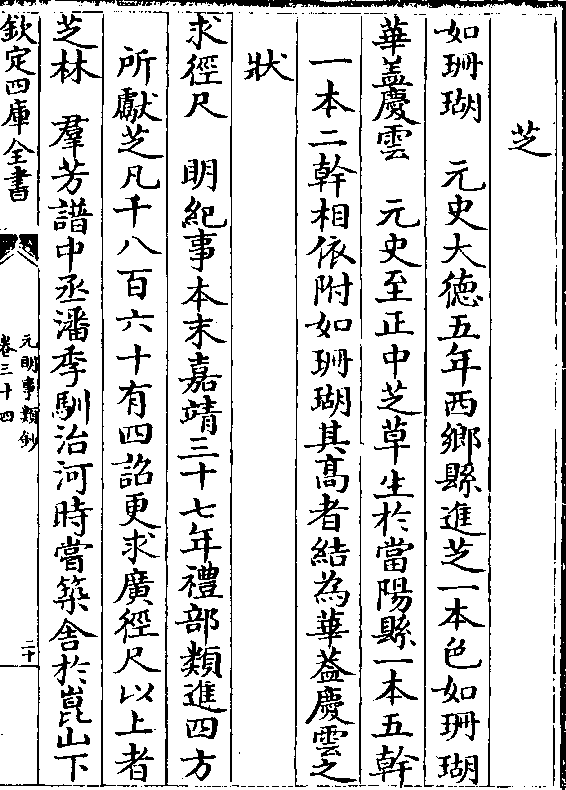 芝
如珊瑚　元史大德五年西鄉縣進芝一本色如珊瑚
華盖慶雲　元史至正中芝草生於當陽縣一本五幹
一本二幹相依附如珊瑚其高者結為華蓋慶雲之
狀
求徑尺　明紀事本末嘉靖三十七年禮部類進四方
所獻芝凡千八百六十有四詔更求廣徑尺以上者
芝林　羣芳譜中丞潘季馴治河時嘗築舍於崑山下
欽定四庫全書
元明事類鈔
卷三十四
二十